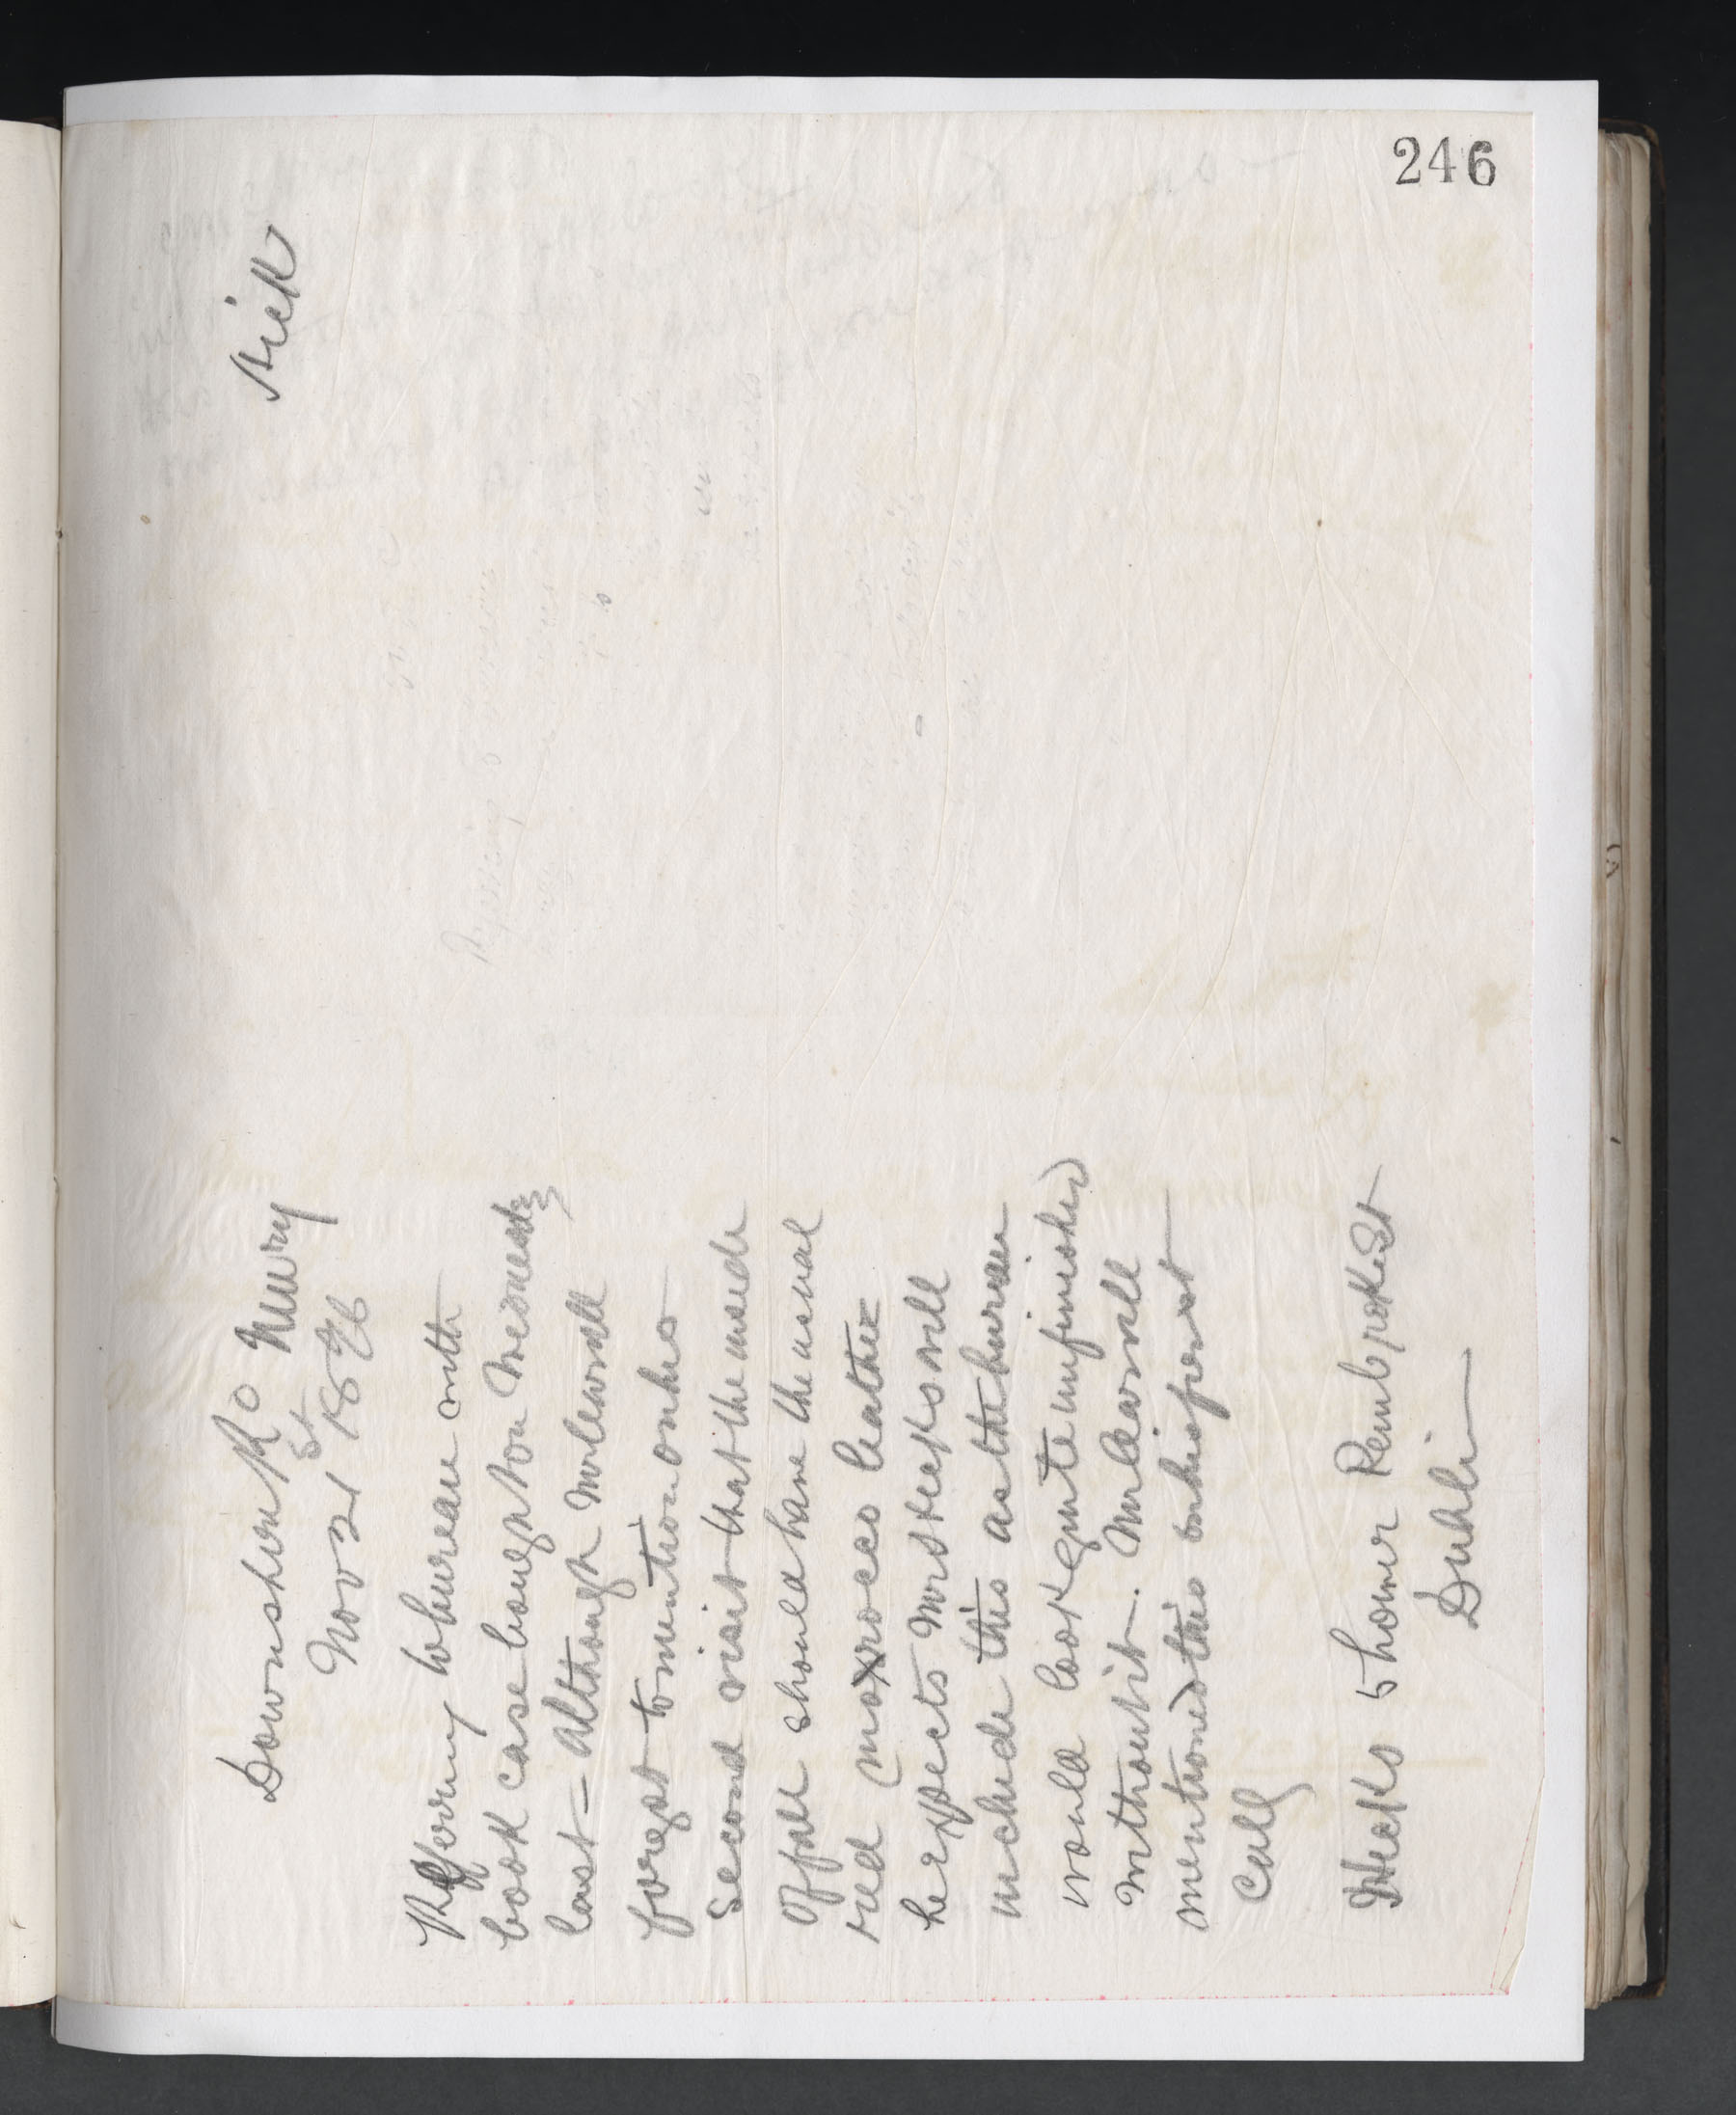 246
Hick
Downshire Rd Newry
Nov 21st 1896
Referring to bureau with
book case bought on Wednesday
last = Although Molesworth
forgot to mention on his
second visit that the inside
of fall should have the usual
red morocco leather =
he expects Mr Hicks will
include this as the bureau
would look quite unfinished
without it. Molesworth
mentioned this on his first
call
Hicks 5 Lower Pembroke St
Dublin